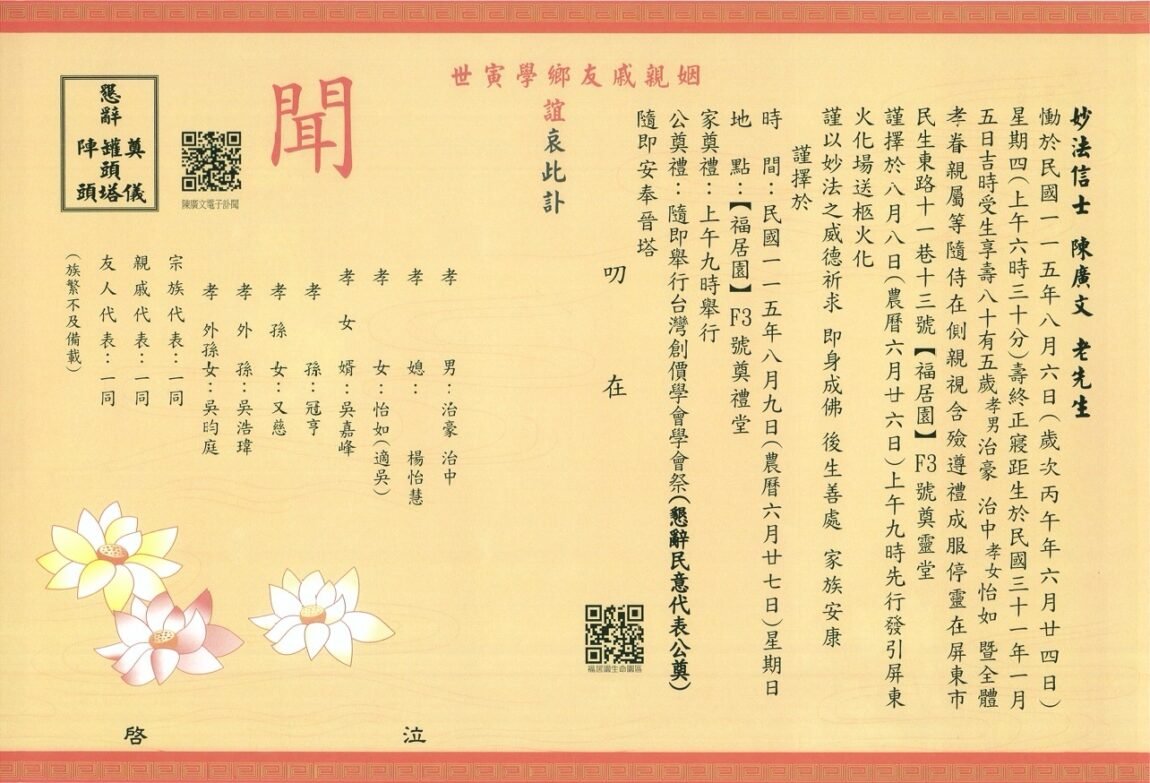 妙法信士 陳廣文 老先生
慟於民國一一五年八月六日(歲次丙午年六月廿四日)
星期四(上午六時三十分)壽終正寢距生於民國三十一年一月
五日吉時受生享壽八十有五歲孝男治豪 治中孝女怡如 暨全體
孝眷親屬等隨侍在側親視含殮遵禮成服停靈在屏東市
民生東路十一巷十三號【福居園】F3號奠靈堂
謹擇於八月八日(農曆六月廿六日)上午九時先行發引屏東
火化場送柩火化
謹以妙法之威德祈求 即身成佛 後生善處 家族安康
謹擇於
時 間:民國一一五年八月九日(農曆六月廿七日)星期日
地 點:【福居園】F3號奠禮堂
家奠禮:上午九時舉行
公奠禮:隨即舉行台灣創價學會學會祭(懇辭民意代表公奠)
隨即安奉晉塔
叨在
福居園生命園區
姻親戚友鄉學寅世
誼哀此訃
聞
陳廣文電子訃聞
懇辭
奠儀
罐頭塔
陣頭
孝男:治豪 治中
孝媳:楊怡慧
孝女:怡如(適吳)
孝女婿:吳嘉峰
孝孫:冠亨
孝孫女:又慈
孝外孫:吳浩瑋
孝外孫女:吳昀庭
宗族代表:一同
親戚代表:一同
友人代表:一同
(族繁不及備載)
泣啓